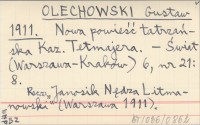 OLECHOWSKI Gustaw
1911. Nowa powieść tatrzań-
ska Kaz. Tetmajera. – Świat
(Warszawa-Kraków) 6, nr 21:
8.
Rec.: "Janosik Nędza Litma-
nowski" (Warszawa 1911).
BZ